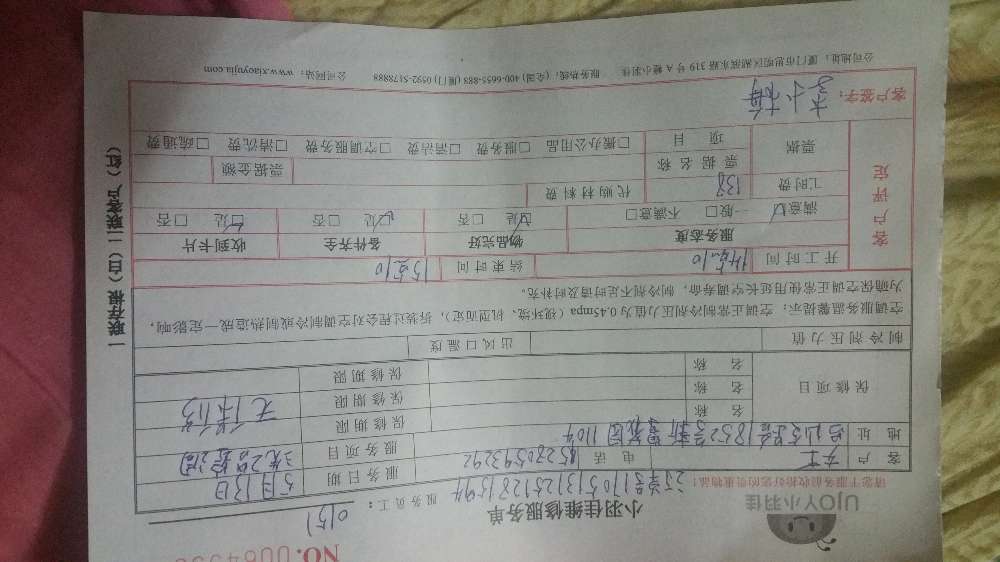 NO.
UJOY小羽佳
小羽佳维修服务单
服务员工：0151
请您于服务前收拾好您的贵重物品！
客户
电话
服务日期 5月13日
地址
服务项目
保修项目
名称
保修期限 无保修
名称
保修期限
名称
保修期限
制冷剂压力值
出风口温度
空调服务温馨提示：空调正常制冷剂压力值为0.45mpa（视环境、机型而定），拆装过程会对空调制冷或制热造成一定影响，
为确保空调正常使用延长空调寿命，制冷剂不足时请及时补充。
客户评定
开工时间
结束时间 15点10
服务态度 物品完好 备件齐全 收到卡片
满意□ 一般□ 不满意□ □是 □否 □是 □否 □是 □否
工时费 138
代购材料费
票据
票据名称
票据金额
项目
□搬办公用品 □服务费 □清洁费 □空调服务费 □清洗费 □疏通费
客户签字：
公司地址：厦门市思明区湖滨东路319号A幢小羽佳 服务热线：(全国) 400-6655-888 (厦门) 0592-5178888 公司网站：www.xiaoyujia.com
一联存根（白）二联客户（红）